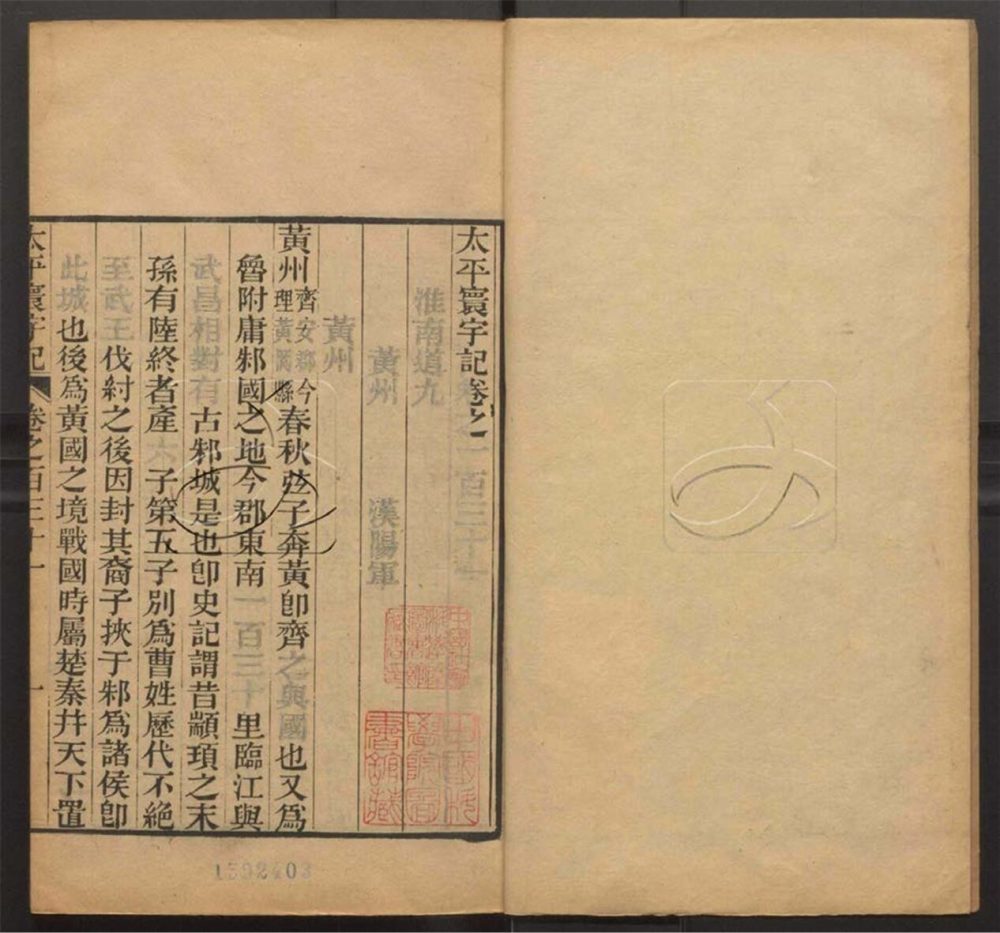 太平寰宇記卷之一百三十一
淮南道九
黃州 漢陽軍
黃州
黃州齊安郡今理黃岡縣春秋弦子奔黃卽齊之與國也又爲
魯附庸邾國之地今郡東南一百三十里臨江與
武昌相對有古邾城是也卽史記謂昔顓頊之末
孫有陸終者產六子第五子別爲曹姓歷代不絕
至武王伐紂之後因封其裔子挾于邾爲諸侯卽
此城也後爲黃國之境戰國時屬楚秦幷天下置
太平寰宇記 卷之百三十一 一
1592403